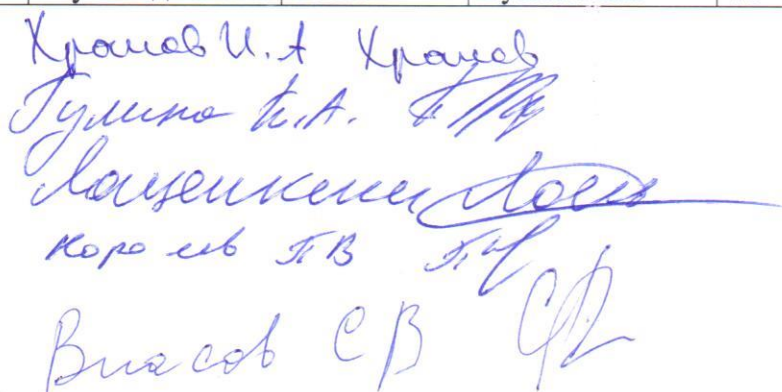 Храмов И.А Храмов
Гулина К.А.
Лащенкин
Королев ПВ
Власов С В